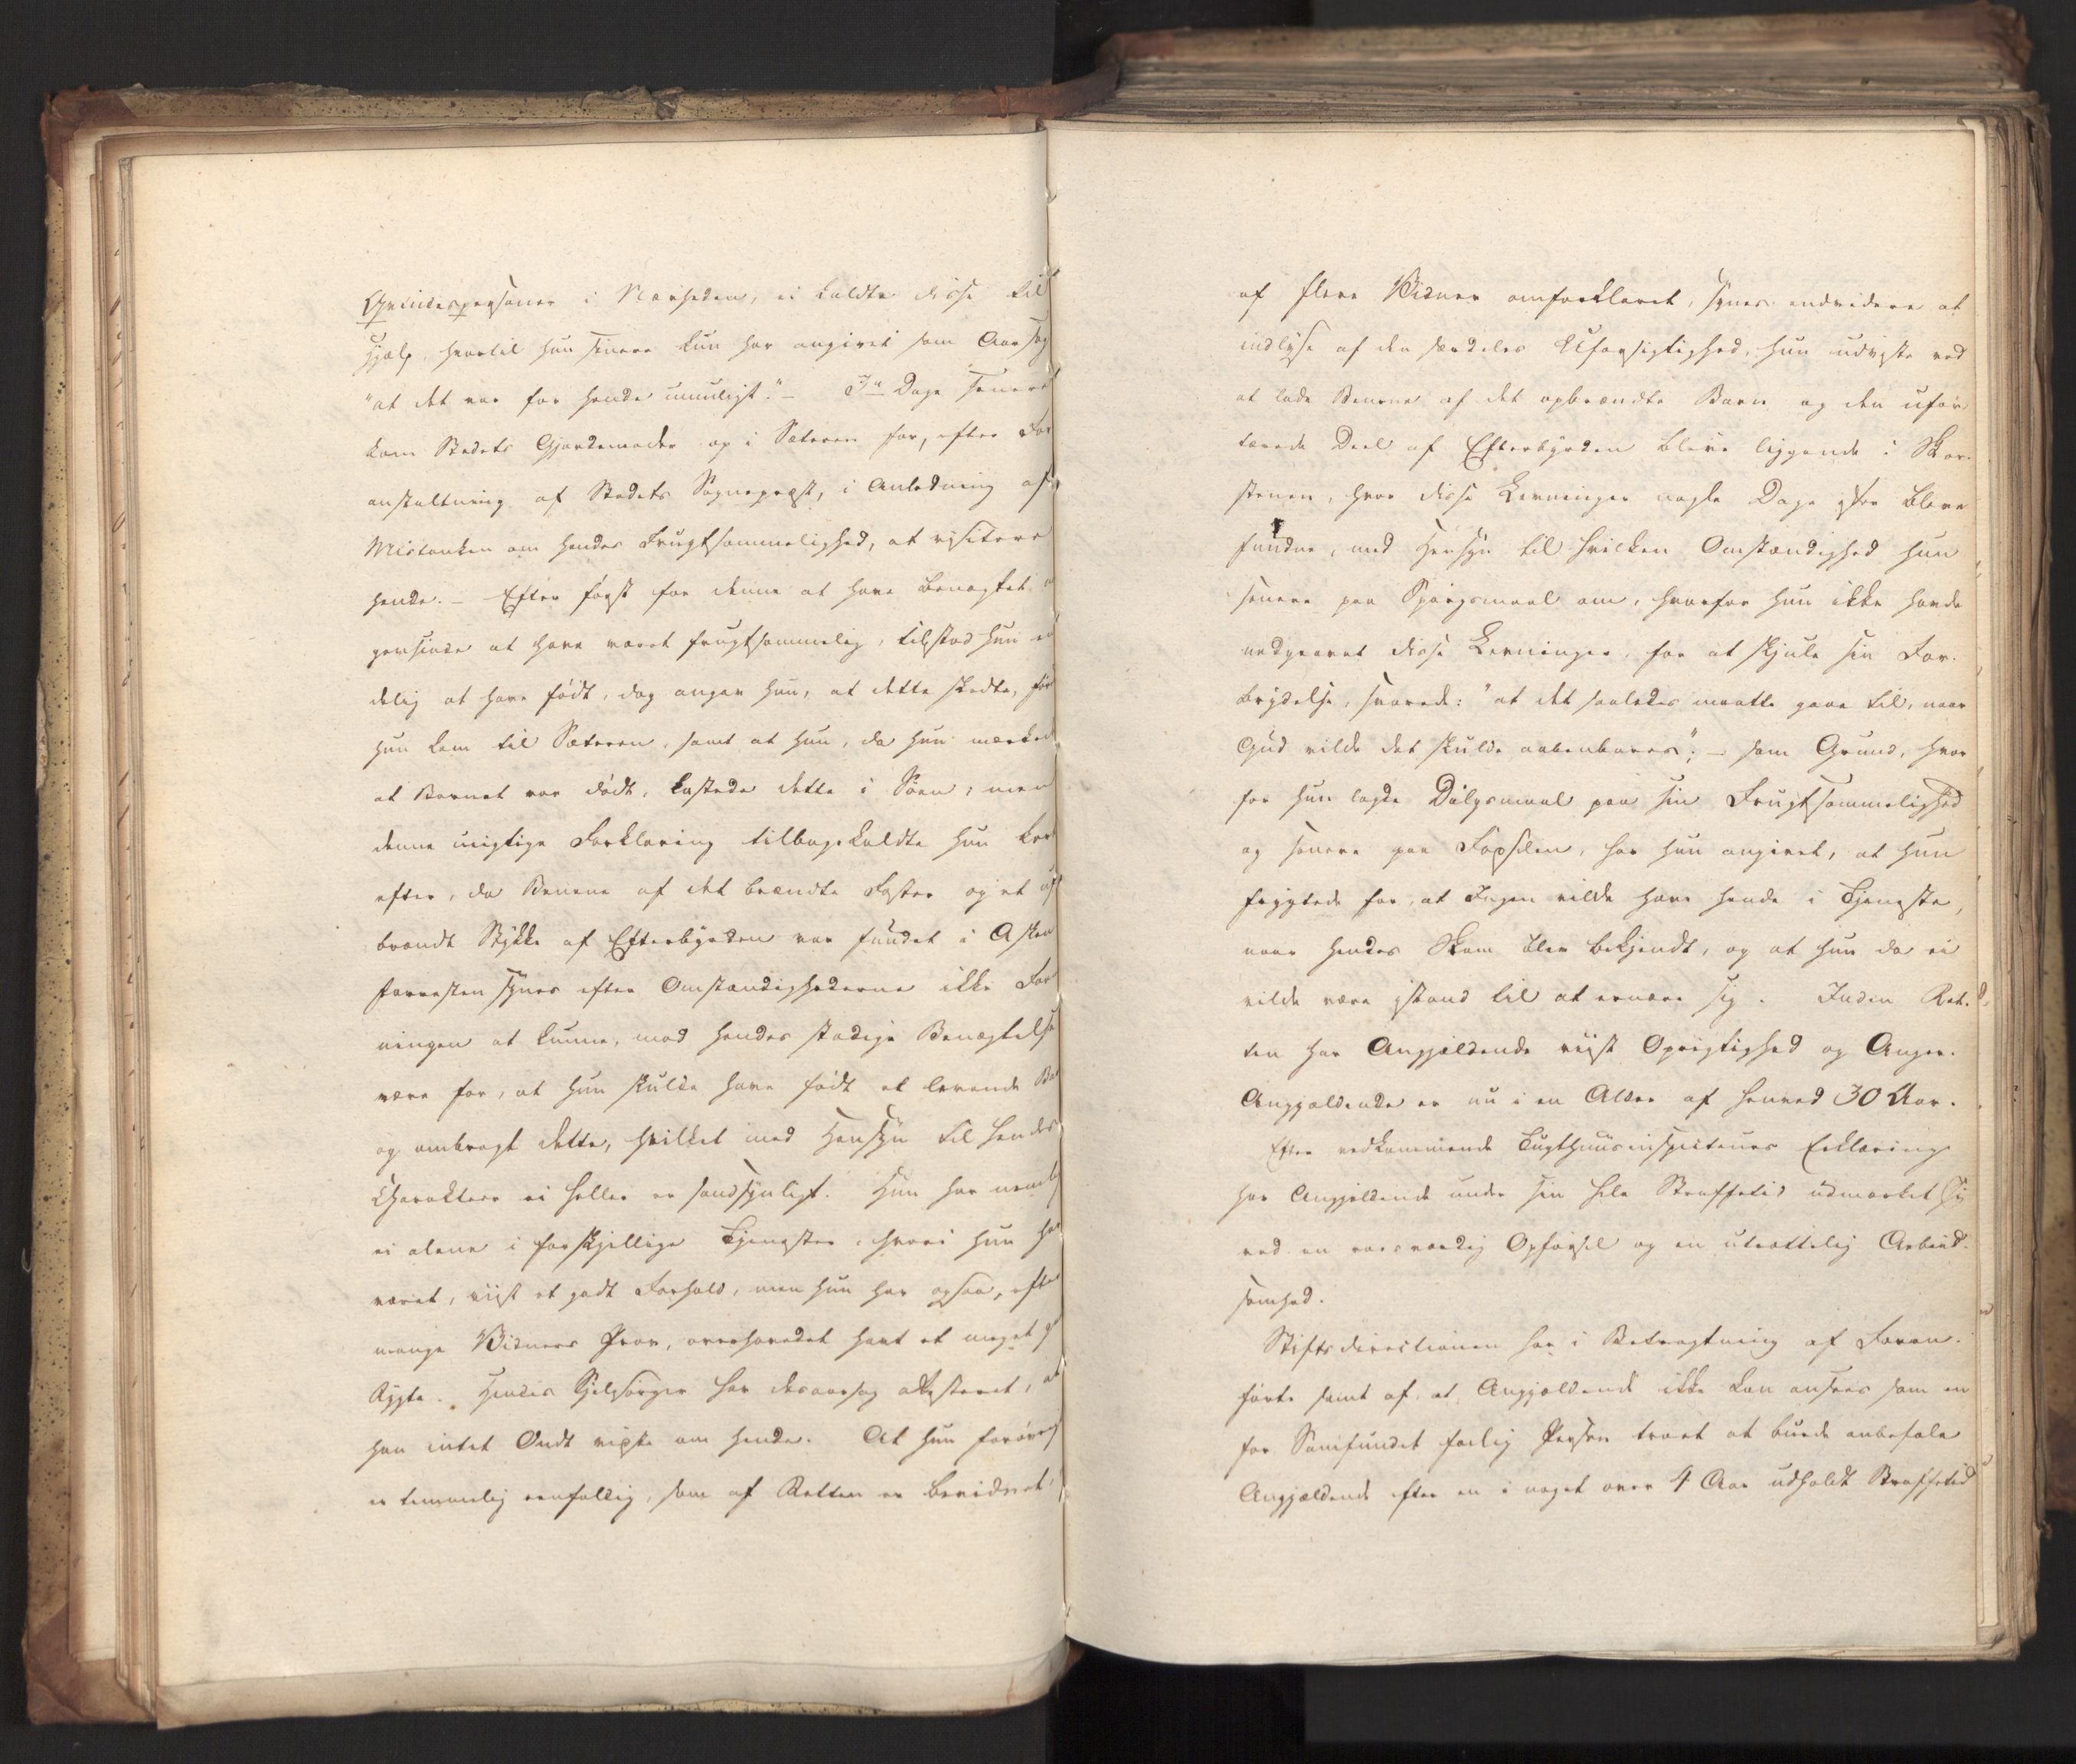 Qvindespersoner i Nærheden, ei kaldte disse til
Hjælp, hvortil hun senere kun har angivet som Aarsag
"at det var for hende umuligt." – Dage senere
kom Stedets Gjordemoder op i Sæteren for, efter For
anstaltning af Stedets Sognepræst, i Anledning af
Mistanken om hendes Frugtsommelighed, at visitere
hende. – Efter først for denne at have benægtet
gensinde at have været frugtsommelig, tilstod hun en
delig at have født, dog angav hun, at dette skedte, før
hun kom til Sæteren, samt at hun, da hun mærked
at Barnet var dødt, kastede dette i Søen; men
denne urigtige Forklaring tilbagekaldte hun kort
efter, da Benene af det brændte Foster og et
brændt Stykke af Efterbyrden var fundet i Asken
forresten synes efter Omstændighederne ikke For
ningen at kunne, mod hendes stadige Benægtelse
være for, at hun skulde have født et levende Ba
og ombragt dette, hvilket med Hensyn til hendes
Charakteer ei heller er sandsynligt. Hun har nemlig
ei alene i forskjellige Tjenester, hvori hun har
været, viist et godt Forhold, men hun har ogsaa, efter
mange Vidners Prov, overhovedet havt et meget
Rygte. Hendes Sjelesørger har desaarsag attesteret, at
han intet Ondt vidste om hende. At hun forøvrigt
er temmelig eenfoldig, som af Retten er bevidnet,
af flere Vidner omforklaret, synes endvidere at
indlyse af den særdeles Uforsigtighed, hun udviste ved
at lade Benene af det opbrændte Barn og den ufor
tærede Deel af Efterbyrden blive liggende i Skor-
stenen, hvor disse Levninger nogle Dage efter bleve
fundne, med Hensyn til hvilken Omstændighed hun
senere paa Spørgsmaal om, hvorfor hun ikke havde
nedgravet disse Levninger, for at skjule sin For-
brydelse, svarede: "at det saaledes maatte gaae til, naar
Gud vilde det skulde aabenbares"; – som Grund, hvor
for hun lagde Dølgsmaal paa sin Frugtsommelighed
og senere paa Fødselen, har hun angivet, at hun
frygtede for, at Ingen vilde have hende i Tjeneste,
naar hendes Skam blev bekjendt, og at hun da ei
vilde være istand til at ernære sig. Inden Ret-
ten har Angjældende viist Oprigtighed og Anger.
Angjældende er nu i en Alder af henved 30 Aar.
Efter vedkommende Tugthuusinspecteurs Erklæring
har Angjældende under sin hele Straffetid udmærket sig
ved en roesværdig Opførsel og en utrættelig Arbeid-
somhed.
Stiftsdirectionen har i Betragtning af Foran-
førte samt af, at Angjældende ikke kan ansees som en
for Samfundet farlig Person troet at burde anbefale
Angjældende efter en i noget over 4 Aar udholdt Straffetid